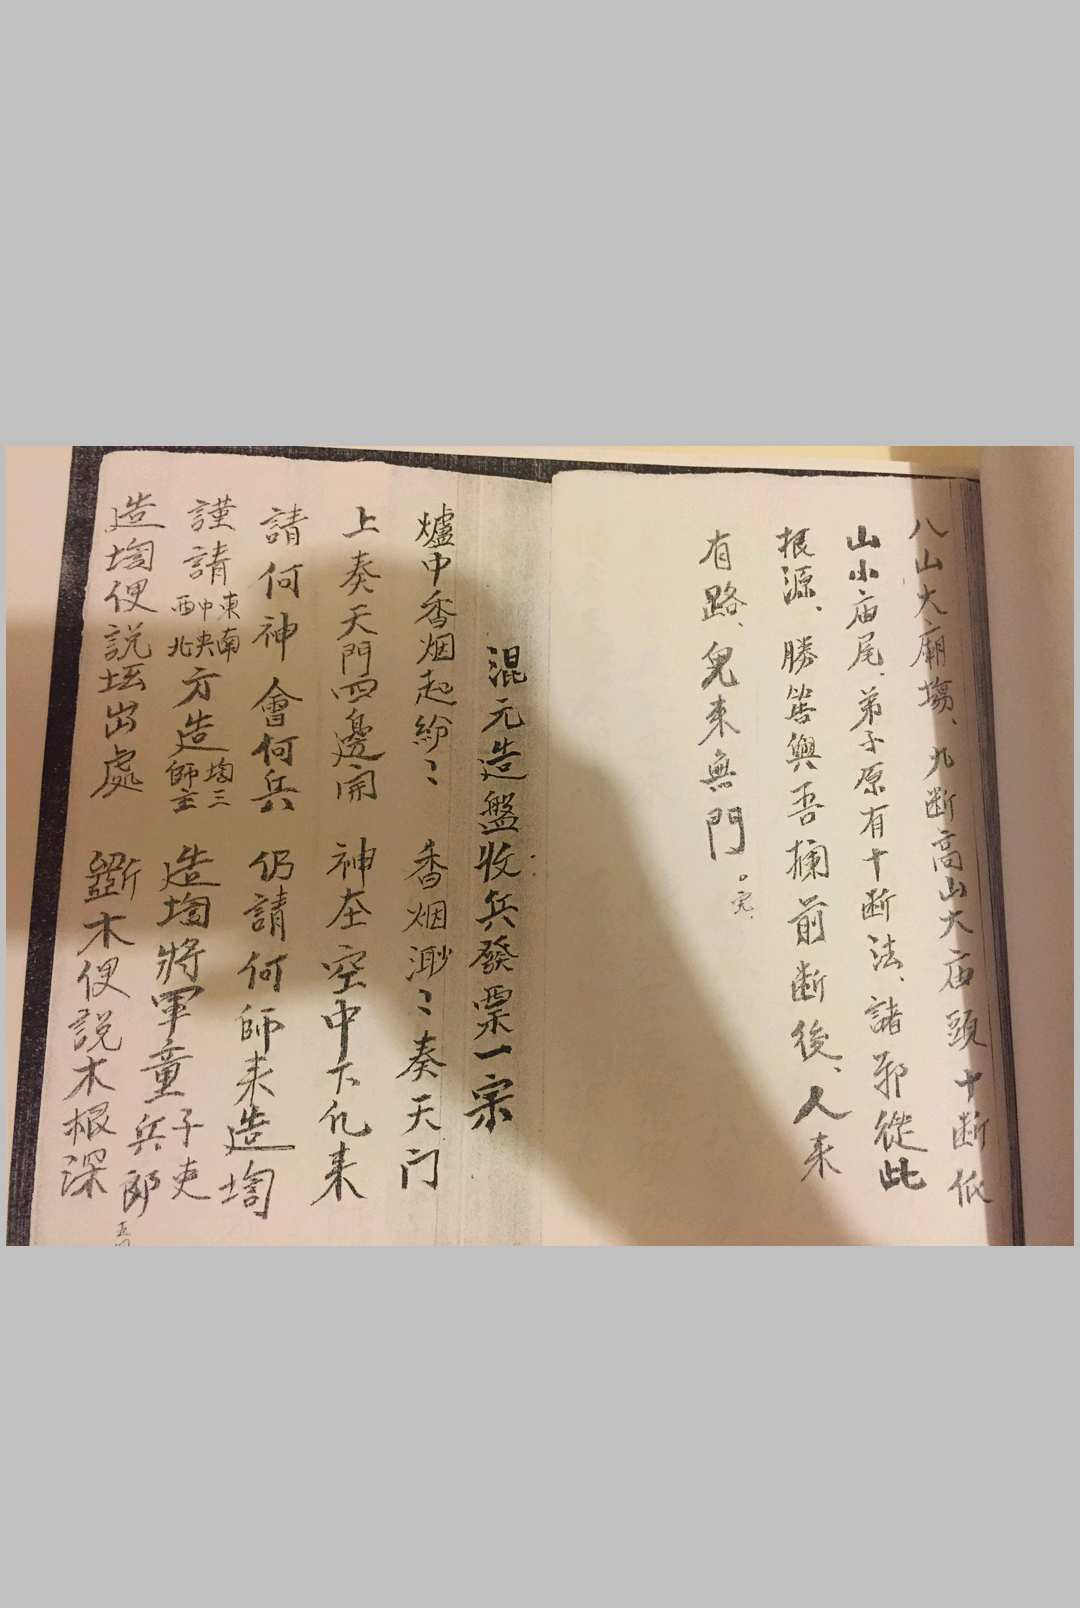 八山大廟塲、九断高山大庙頭十断低
山小庙尾、弟子原有十断法、諸邪從此
根源、勝筶與吾攔前断後、人来
有路、鬼来無門。完
混元造盤收兵發票一宗
爐中香烟起紛〻 香烟渺〻奏天門
上奏天門四邊開 神在空中下化来
請何神 會何兵 仍請何師来造㘭
謹請東南中央西北方造㘭三師主 造㘭將軍童子吏兵郎
造㘭便説坛出處 斷木便説木根深